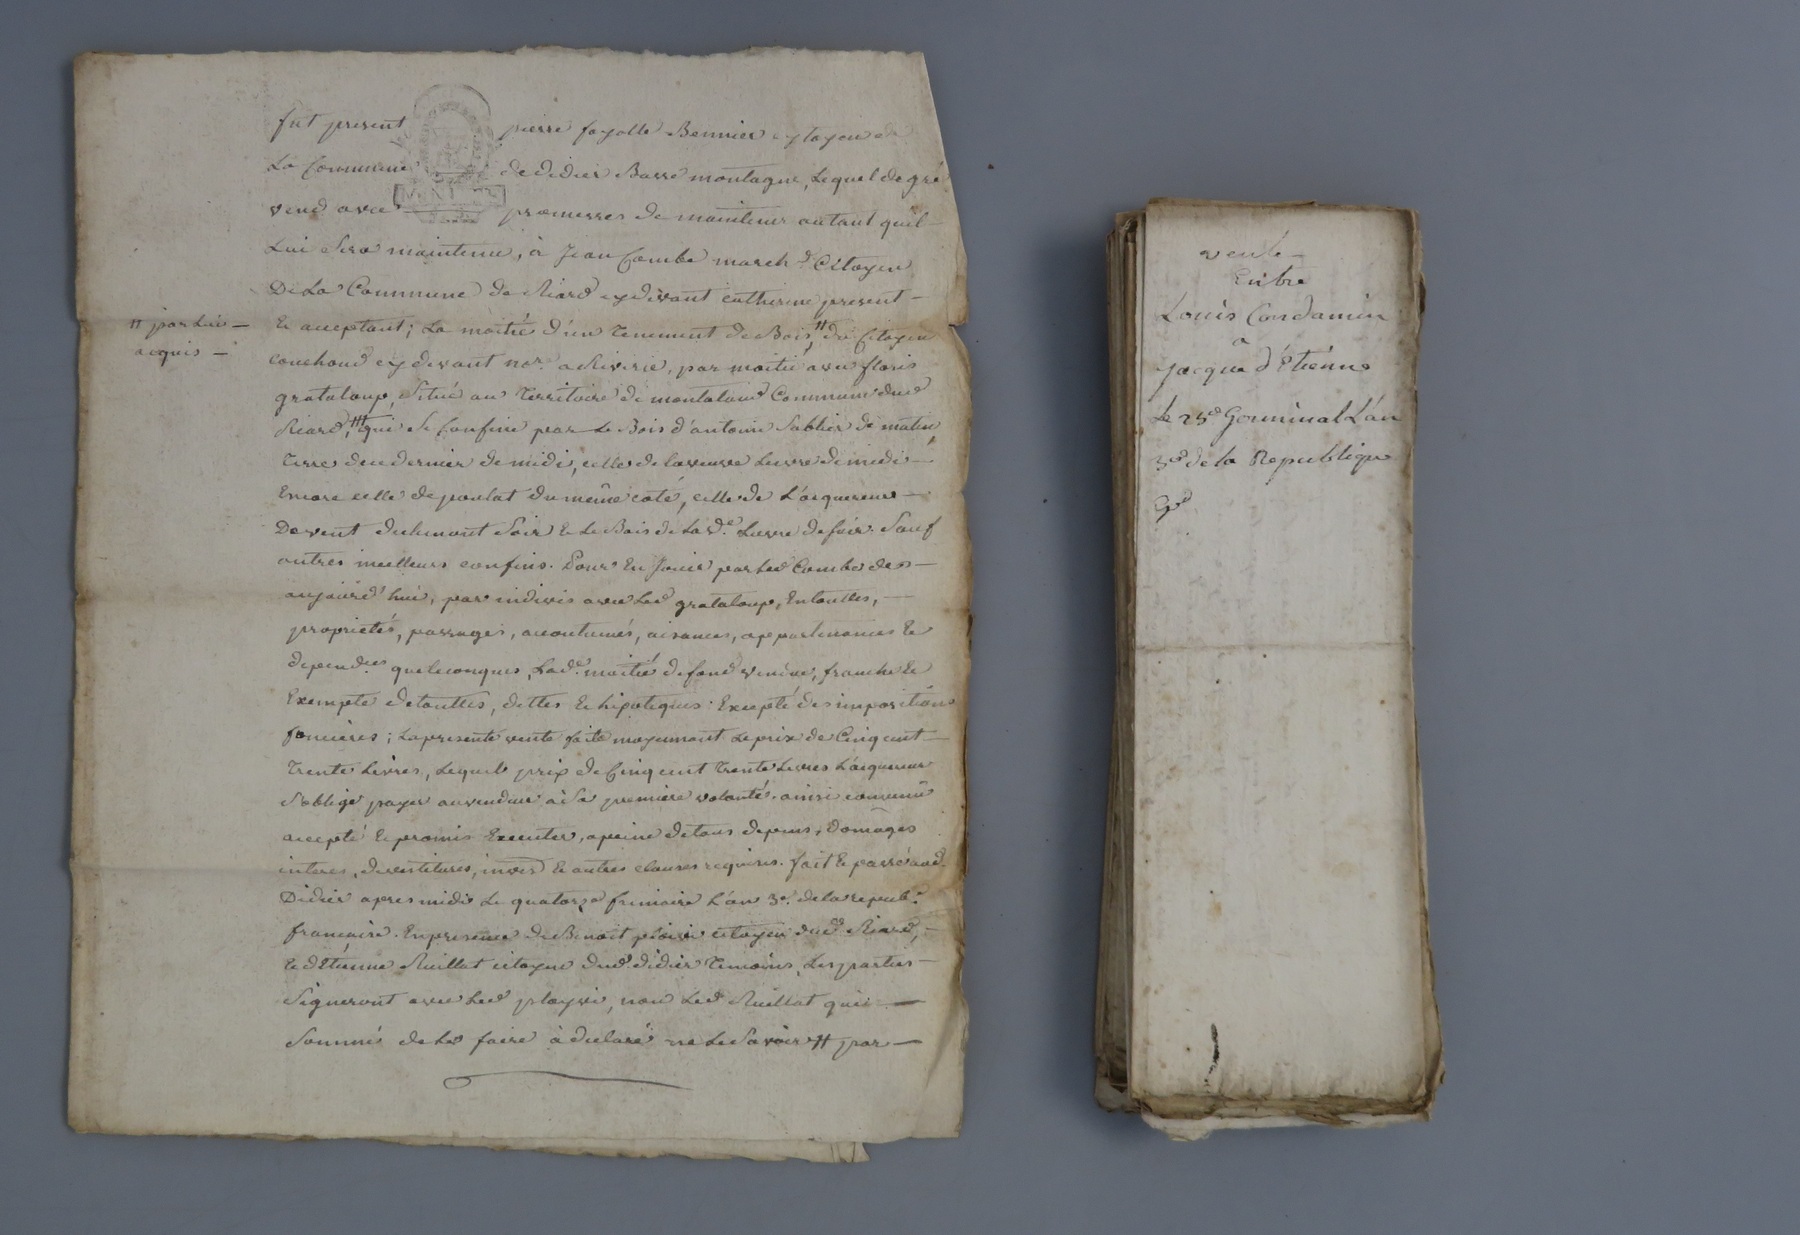 fut present pierre fayolle Bennier cytoyen de
La Commune de didier Basse montagne, Lequel de gré
vend avec promesses de maintenir autant quil
Lui Sera maintenu, à Jean Combe march.d Citoyen
De La Commune de Riard cydevant catherine present
Et acceptant; La moitié d'un Tenement de Bois, # du Citoyen
# par Lui acquis
couchoud cy devant no.re a Riverie, par moitié avec floris
grataloup, Situé au Territoire de montaland Commune dud
Riard, qui Se Confine par Le Bois d'antoine Sablier de matin,
Terre dudernier de midi, celle de la veuve de midi
Encore celle de poulat du même coté, celle de L'acquereur
De vent Soir Et Le Bois de La d.e de soir. Sauf
autres meilleurs confins. Pour En Jouir par Led Combe des
aujourd'hui, par indivis avec Led grataloup, En touttes,
propriétés, passages, accoutumés, aisances, appartenances Et
depend.ces quelconques, Lad.e moitié de fond vendue, franche Et
Exempte de touttes, dettes Et hipoteques: Excepté des impositions
foncieres; La presente vente faite moyennant Le prix de Cinq cent
Trente Livres, Lequel prix de Cinq cent Trente Livres L'acquereur
S'oblige payer au vendeur, à Sa premiere volonté. ainsi convenu
accepté Et promis Executer, a peine de tous depens, domages
interes, devestitures, invest Et autres clauses requises. fait Et passé aud
Didier apres midi Le quatorze frimaire L'an 3.e de la republ.e
francaise. En presence de Benoit citoyen dud Riard,
Et d'Etienne Ruillat citoyen dud. didier Temoins, Les parties
Signeront avec Led non Led Ruillat qui
Sommé de Le faire à declaré ne Le Savoir # par
vente
Entre
Louis Condamin
a
Jacque d'Etienne
Le 25e Germinal L'an
3e de la Republique